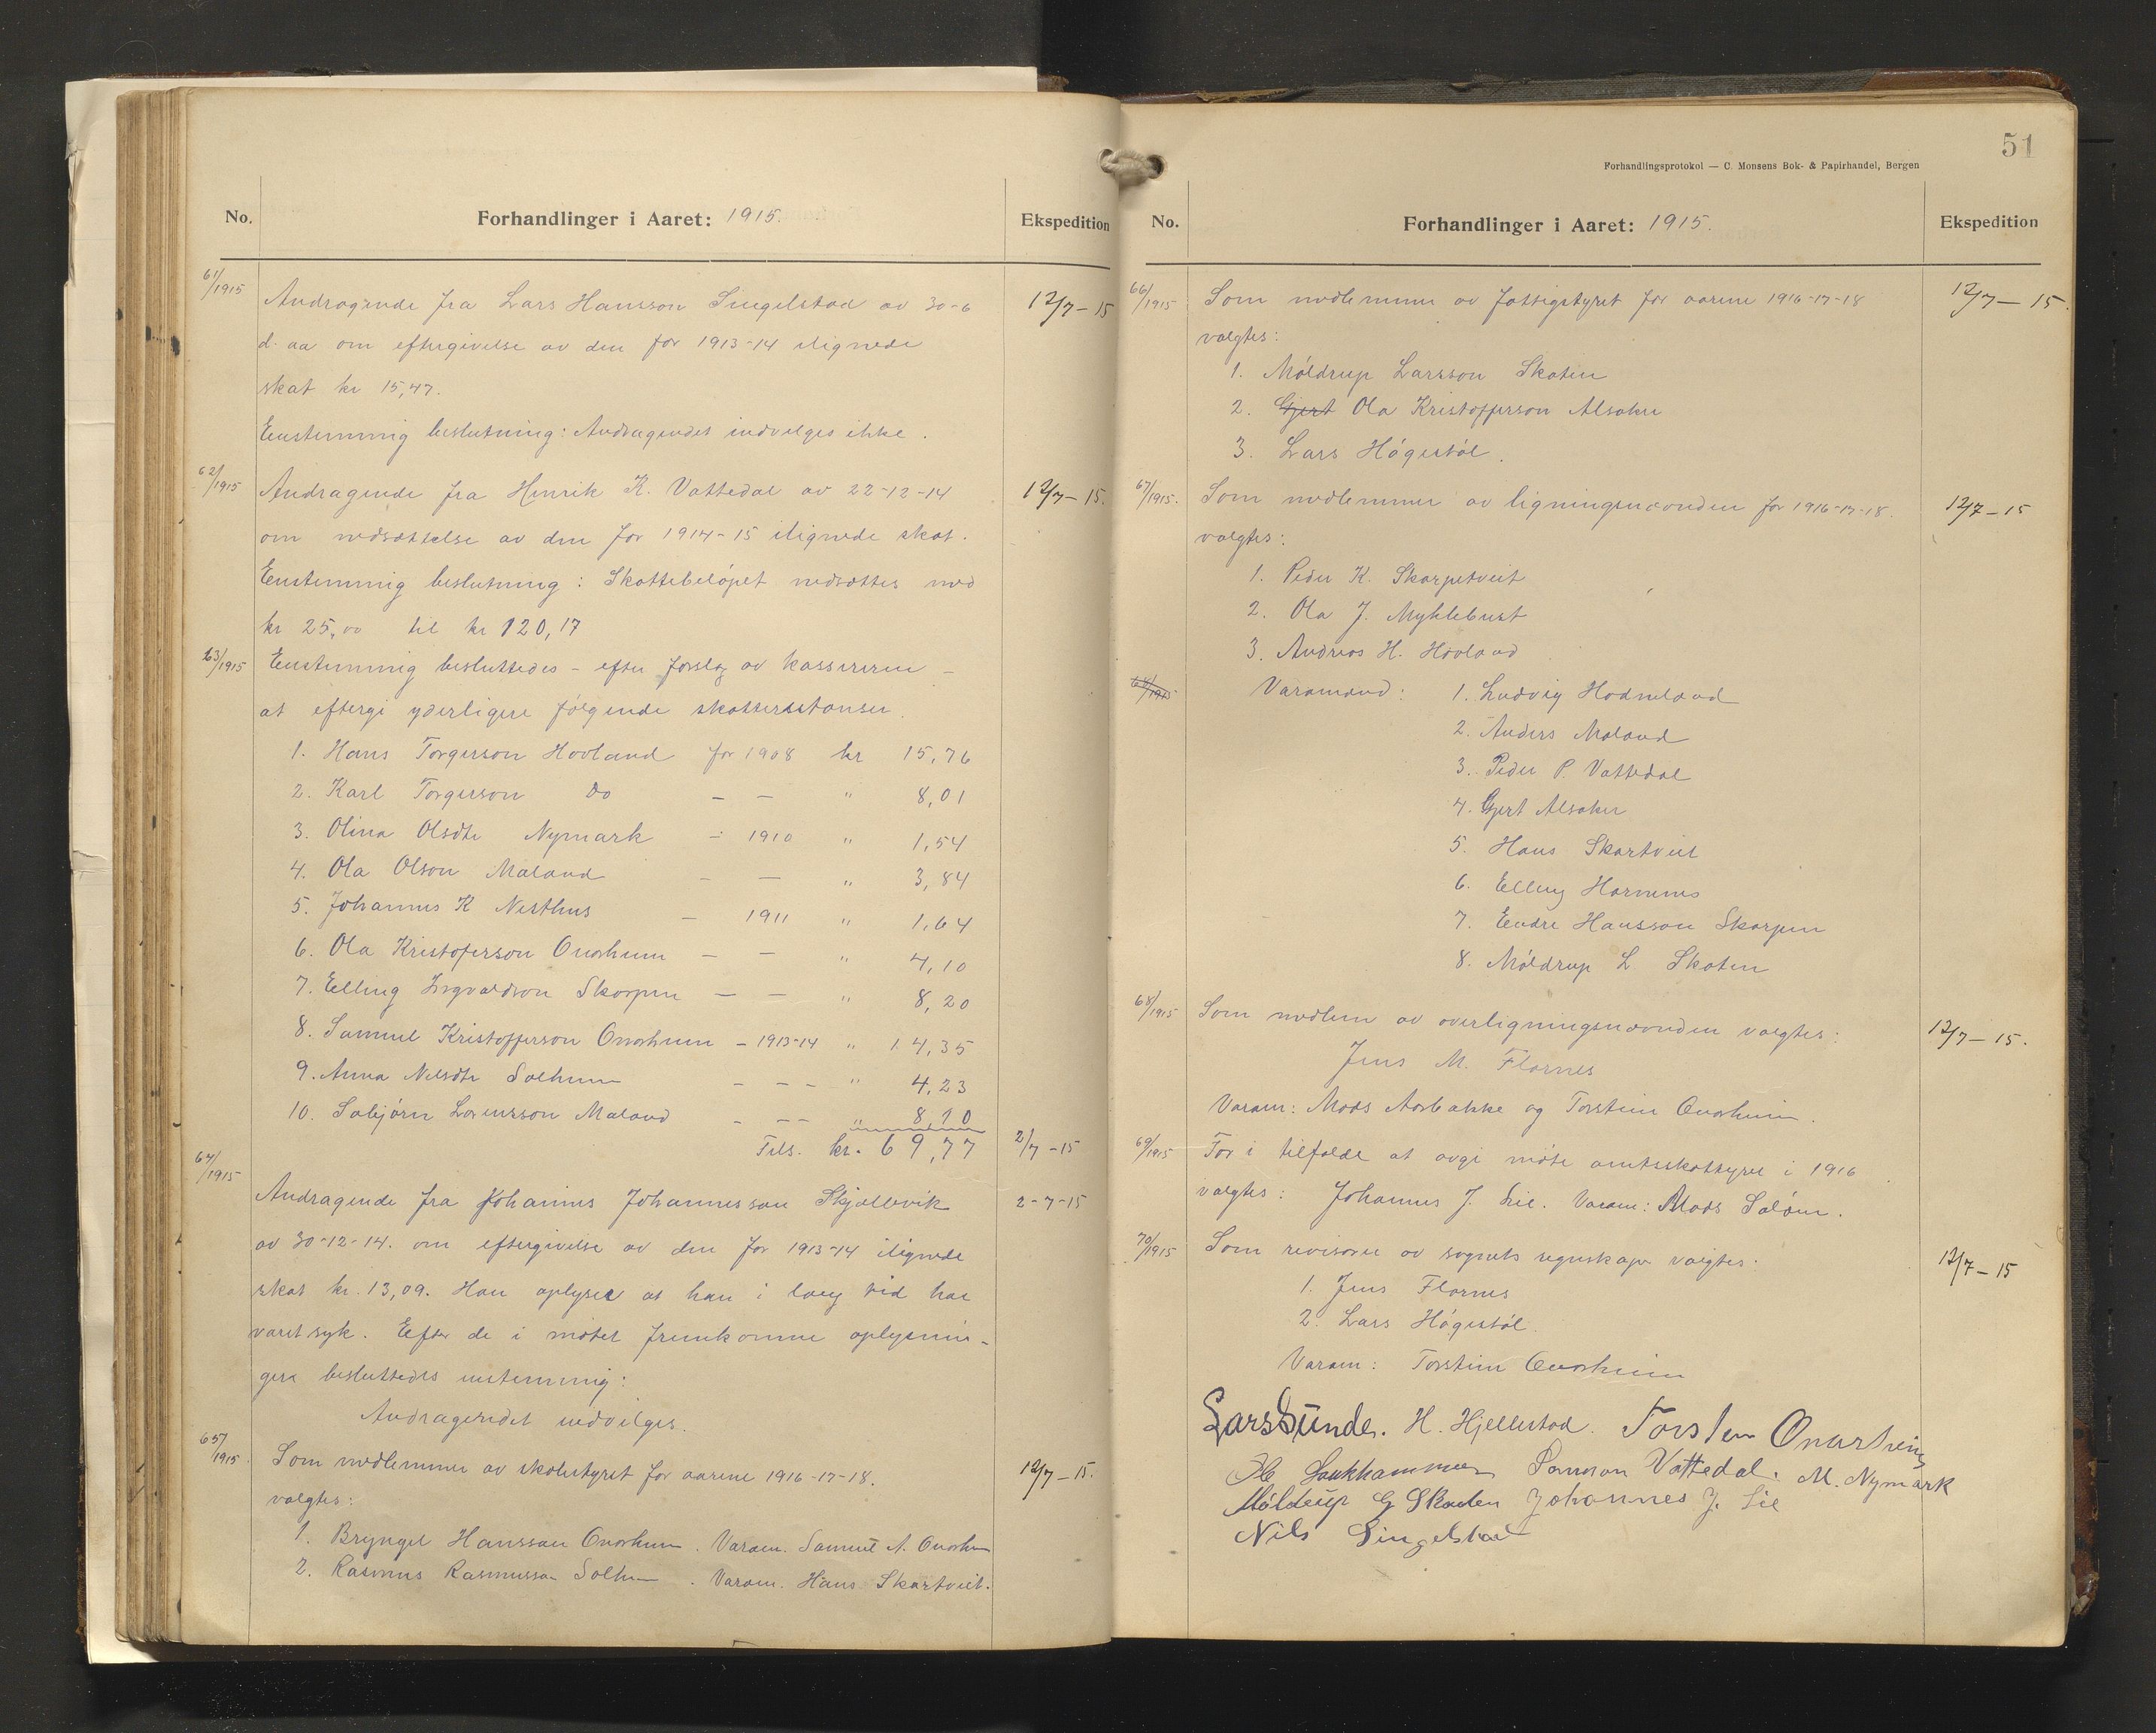 No. Forhandlinger i Aaret: 1915. Ekspedition
61/1915 Andragende fra Lars Hansson Singelstad av 30-6 12/7-15
d. aa om eftergivelse av den for 1913-14 ilignede
skat kr 15,47.
Enstemmig beslutning: Andragendet indvilges ikke.
62/1915 Andragende fra Henrik K. Vattedal av 22-12-14 12/7-15.
om nedsættelse av den for 1914-15 ilignede skat.
Enstemmig beslutning: Skattebeløpet nedsættes med
kr 25,00 til kr 120,17
63/1915 Enstemmig besluttedes - efter forslag av kassereren -
at eftergi yderligere følgende skatterestanser.
1. Hans Torgerson Hovland for 1908 kr 15,76
2. Karl Torgerson Do — — " 8,01
3. Olina Olsdtr Nymark - 1910 " 1,54
4. Ola Olson Maland - — " 3,84
5. Johannes K Nesthus — 1911 " 1,64
6. Ola Kristoferson Onarheim — — " 4,10
7. Elling Ingvaldson Skorpen — — " 8,20
8. Samuel Kristofferson Onarheim - 1913-14 " 14,35
9. Anna Nilsdtr Solheim - — - " 4,23
10. Salbjørn Larensson Maland - — — " 8,10
Tils. kr. 69,77 2/7-15
64/1915
Andragende fra Johannes Johannesson Skjellevik 2-7-15
av 30-12-14. om eftergivelse av den for 1913-14 ilignede
skat kr. 13,09. Han oplyser at han i lang tid har
varet syk. Efter de i møtet fremkomne oplysnin-
ger besluttedes enstemmig:
Andragendet indvilges.
65/1915 Som medlemmer av skolestyret for aarene 1916-17-18. 12/7-15.
valgtes:
1. Bryngel Hansson Onarheim. Varam. Samuel A. Onarhm
2. Rasmus Rasmusson Solheim. Varam. Hans Skartveit.
51
Forhandlingsprotokol — C. Monsens Bok- & Papirhandel, Bergen
No. Forhandlinger i Aaret: 1915. Ekspedition
66/1915 Som medlemmer av fattigstyret for aarene 1916-17-18 12/7-15.
valgtes:
1. Møldrup Larsson Skaten
2. Gjert Ola Kristofferson Alsaker
3. Lars Høgestøl.
67/1915. Som medlemmer av ligningsnævnden for 1916-17-18. 12/7-15
valgtes:
1. Peder K. Skarpetveit
2. Ola J. Myklebust
3. Andreas H. Hovland
68/1915 Varamænd: 1. Ludvig Hodneland
2. Anders Maland
3. Peder P. Vattedal
4. Gjert Alsaker
5. Hans Skartveit
6. Elling Hornenes
7. Endre Hansson Skorpen
8. Møldrup L. Skaten
68/1915 Som medlem av overligningsnævnden valgtes: 12/7-15.
Jens M. Flornes
Varam: Mads Aarbakke og Torstein Onarheim.
69/1915 For i tilfælde at avgi møte amtsskattyre i 1916
valgtes: Johannes J. Lie. Varam: Mads Saløen.
70/1915 Som revisorer av sognets regnskaper valgtes: 12/7-15
1. Jens Flornes
2. Lars Høgestøl.
Varam: Torstein Onarheim
Lars Sunde. H. Hjellestad. Torsten Onarheim
Samson Vattedal. M. Nymark
Møldrup G Skaten Johannes J. Lie
Nils Singelstad